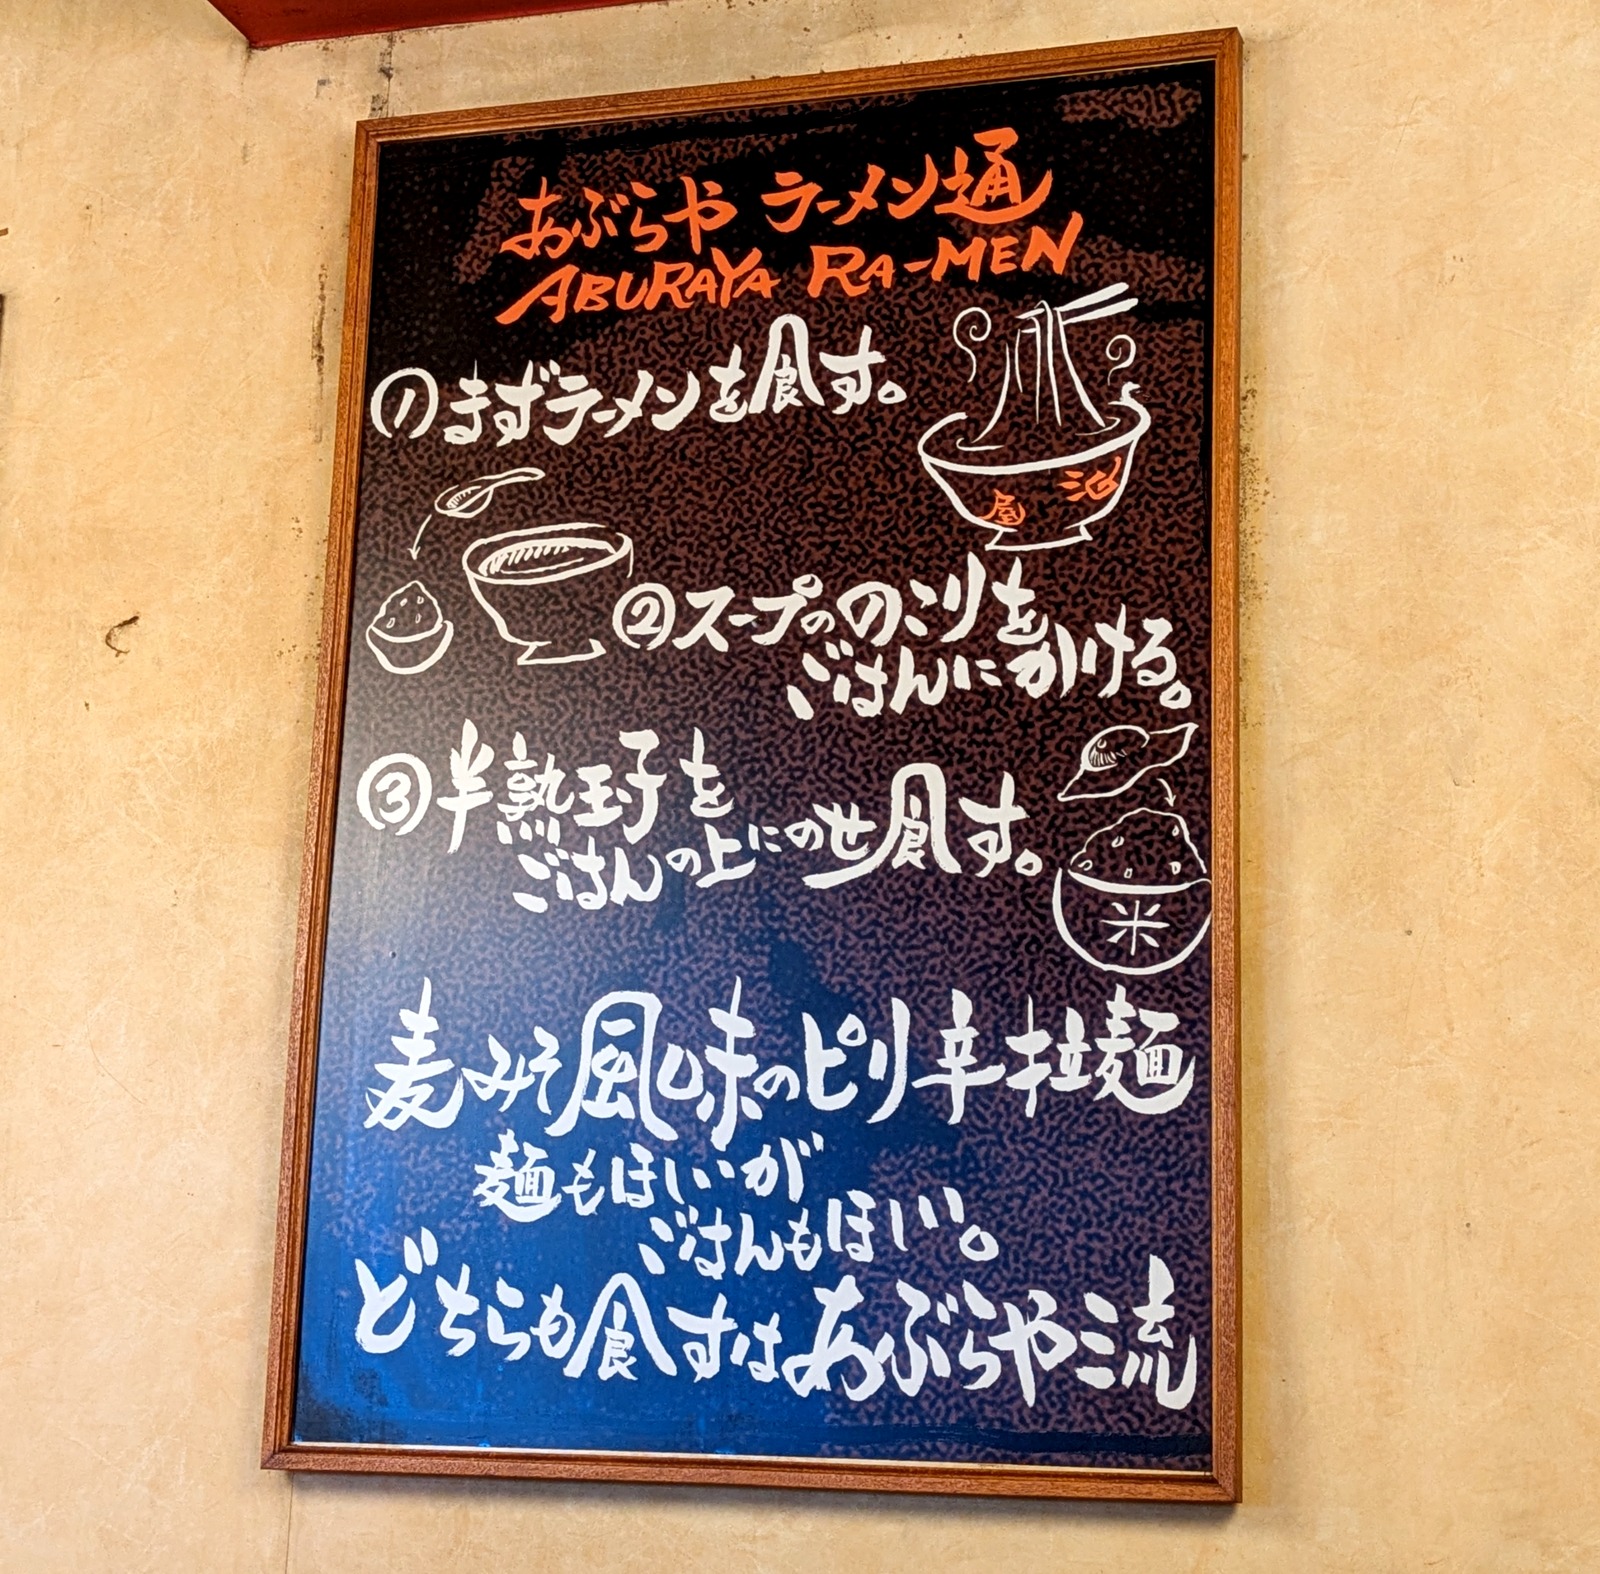 あぶらや ラーメン通
ABURAYA RA-MEN
①まずラーメンを食す。
油
屋
②スープののこりを
ごはんにかける。
③半熟玉子を
ごはんの上にのせ食す。
米
麦みそ風味のピリ辛拉麺
麺もほしいが
ごはんもほしい。
どちらも食すはあぶらや流